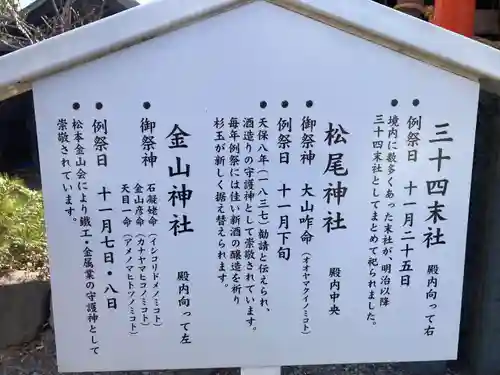 三十四末社 殿内向って右
● 例祭日 十一月二十五日
● 境内に数多くあった末社が、明治以降
三十四末社としてまとめて祀られました。
松尾神社 殿内中央
● 御祭神 大山咋命(オオヤマクイノミコト)
● 例祭日 十一月下旬
● 天保八年(一八三七)勧請と伝えられ、
酒造りの守護神として崇敬されています。
毎年例祭には佳い新酒の醸造を祈り
杉玉が新しく据え替えられます。
金山神社 殿内向って左
● 御祭神 石凝姥命(イシコリドメノミコト)
金山彦命(カナヤマヒコノミコト)
天目一命(アメノマヒトツノミコト)
● 例祭日 十一月七日・八日
● 松本金山会により鐵工・金属業の守護神として
崇敬されています。